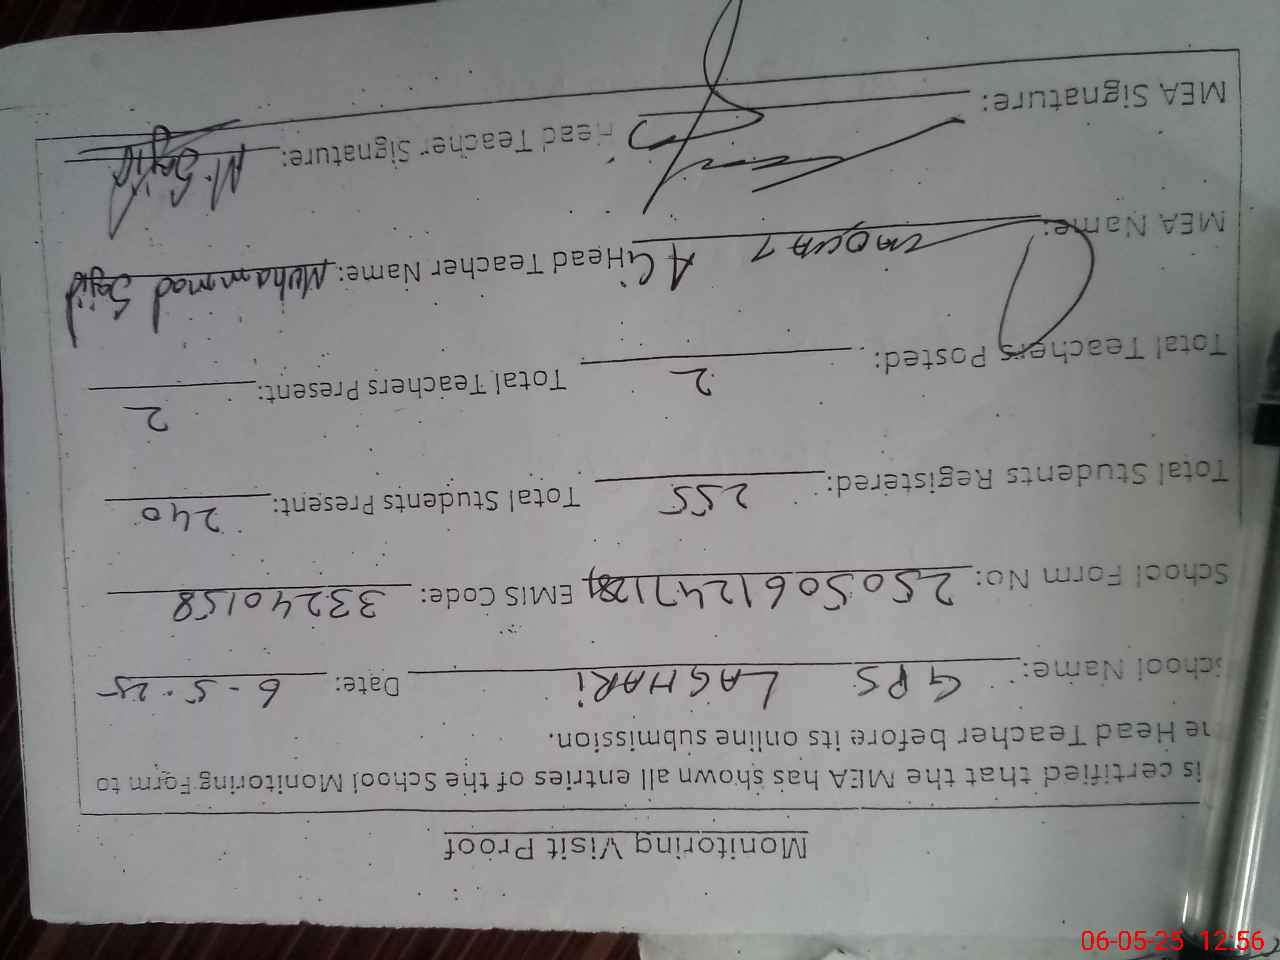 Monitoring Visit Proof
is certified that the MEA has shown all entries of the School Monitoring Form to
he Head Teacher before its online submission.
School Name: GPS LAGHARi Date: 6-5-25
School Form No: EMIS Code: 33240158
Total Students Registered: 255 Total Students Present: 240
Total Teachers Posted: 2 Total Teachers Present: 2
MEA Name: Head Teacher Name: Muhammad Sajid
MEA Signature: Head Teacher Signature: M. Sajid
06-05-25 12:56